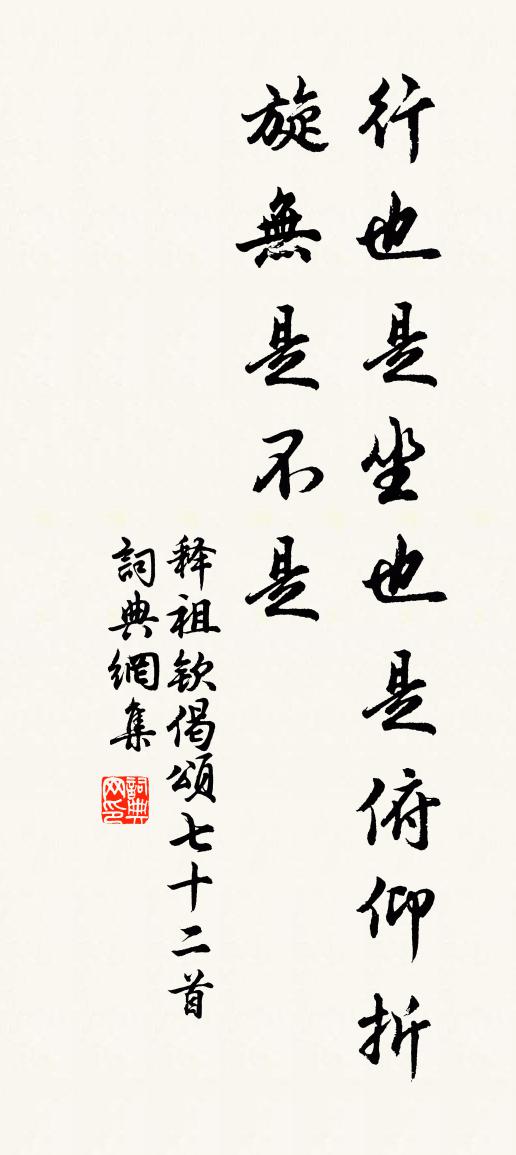 行也是坐也是俯仰折
旋無是不是
释祖欽偈頌七十二首
詞典網集
詞典網印